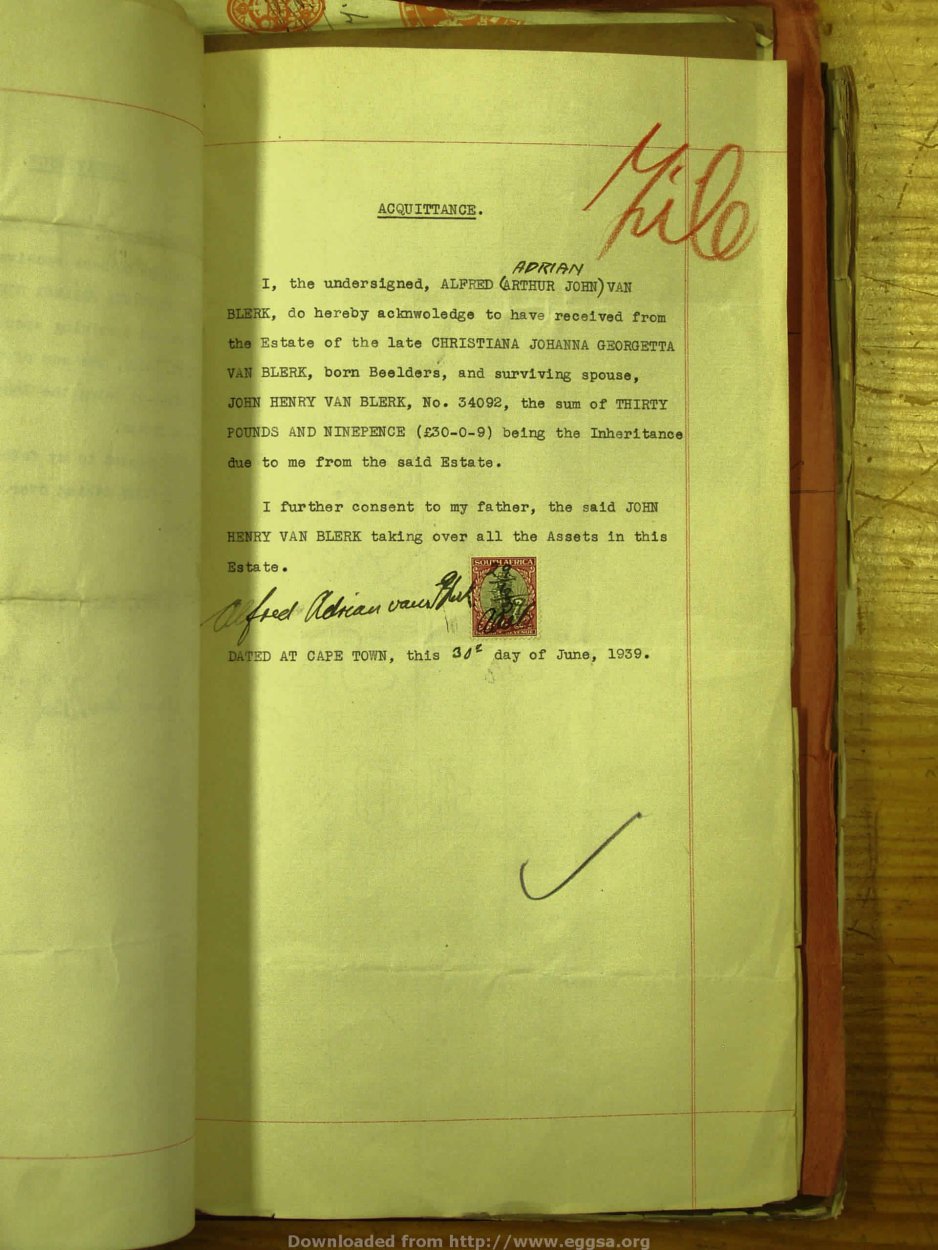 File
ACQUITTANCE.
ADRIAN
I, the undersigned, ALFRED (ARTHUR JOHN) VAN
BLERK, do hereby acknwoledge to have received from
the Estate of the late CHRISTIANA JOHANNA GEORGETTA
VAN BLERK, born Beelders, and surviving spouse,
JOHN HENRY VAN BLERK, No. 34092, the sum of THIRTY
POUNDS AND NINEPENCE (£30-0-9) being the Inheritance
due to me from the said Estate.
I further consent to my father, the said JOHN
HENRY VAN BLERK taking over all the Assets in this
Estate.
SOUTH AFRICA
Alfred Adrian van Blerk
DATED AT CAPE TOWN, this day of June, 1939.
Downloaded from http://www.eggsa.org